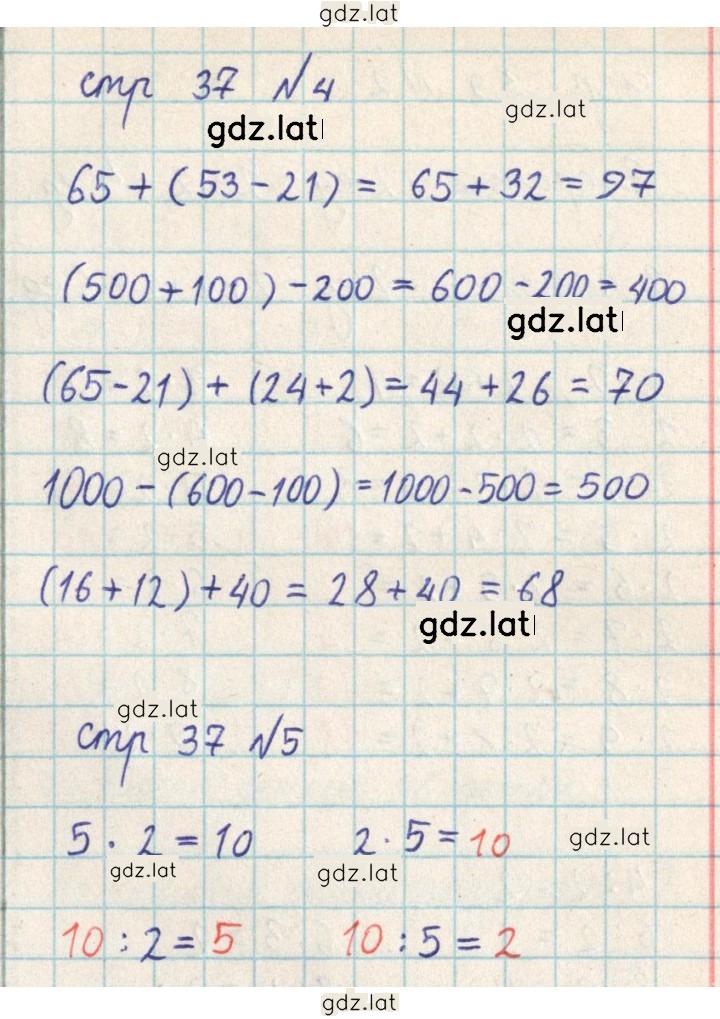 gdz.lat
стр 37 №4
gdz.lat gdz.lat
65 + (53 - 21) = 65 + 32 = 97
(500 + 100) - 200 = 600 - 200 = 400
gdz.lat
(65 - 21) + (24 + 2) = 44 + 26 = 70
gdz.lat
1000 - (600 - 100) = 1000 - 500 = 500
(16 + 12) + 40 = 28 + 40 = 68
gdz.lat
gdz.lat
стр 37 №5
5 · 2 = 10 2 · 5 = 10 gdz.lat
gdz.lat gdz.lat
10 : 2 = 5 10 : 5 = 2
gdz.lat